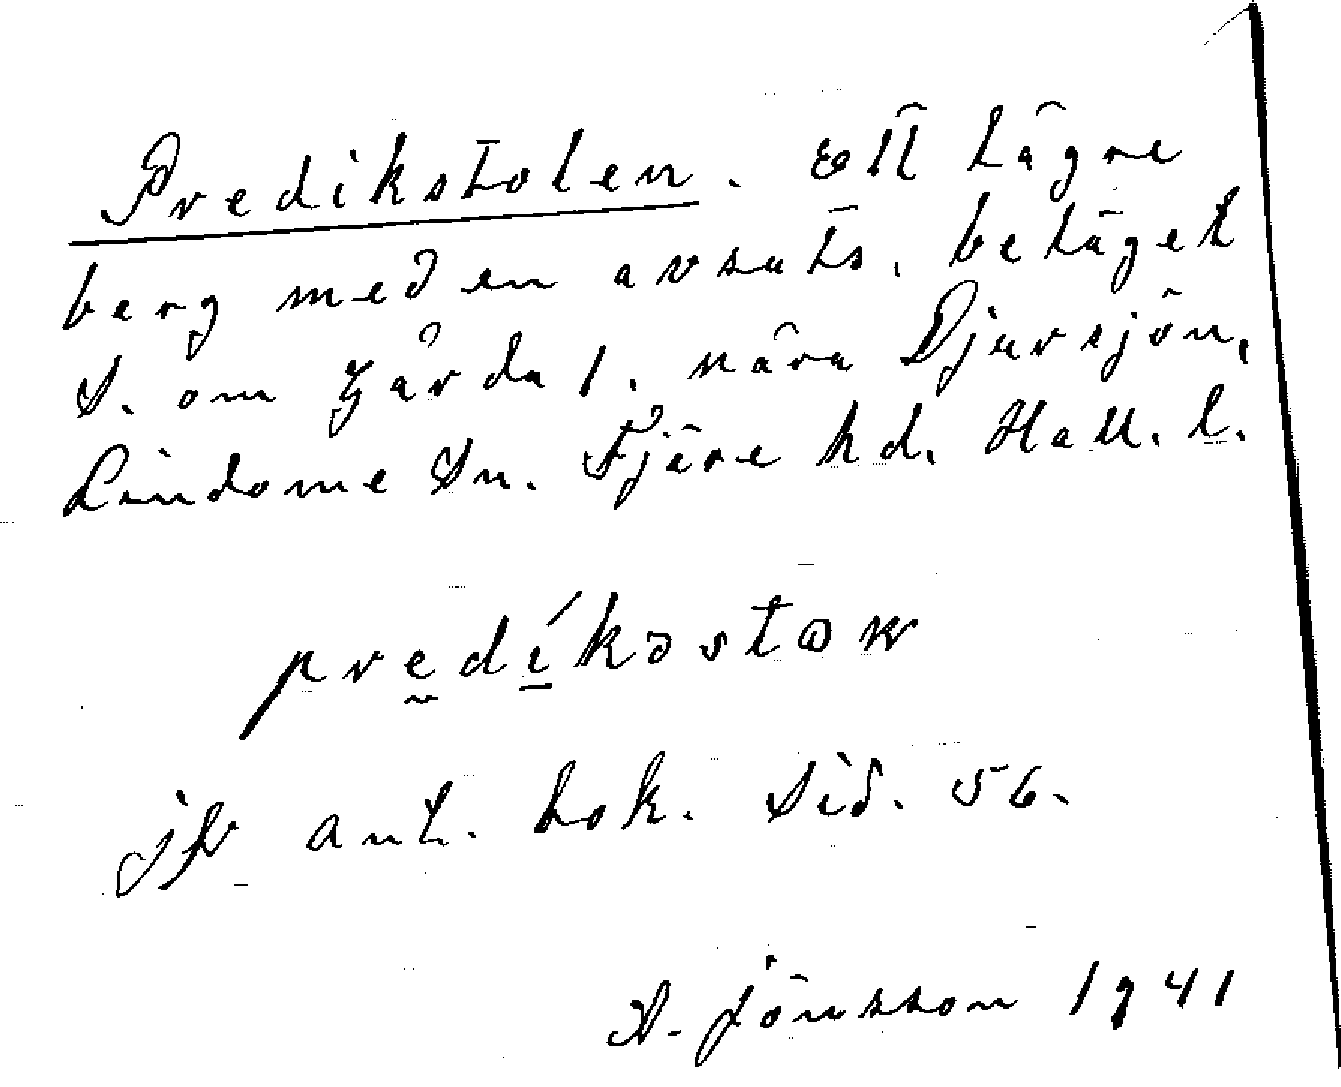 Predikstolen. Ett lägre
berg med en avsats, beläget
S. om Gårda 1. nära Djursjön,
Lindome Sn. Fjäre hd. Hall. l.
predíkəstɷ
jfr ant. bok. Sid. 56.
A. Jönsson 1941